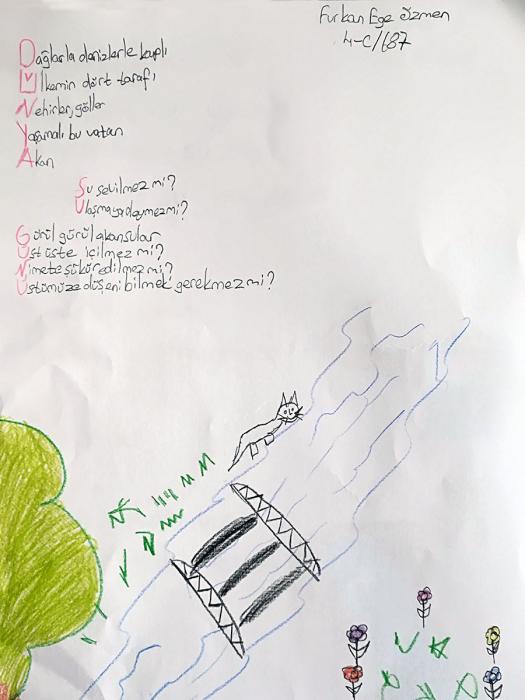 Furkan Ege Özmen
4-C/687
Dağlarla denizlerle kaplı
Ülkemin dört tarafı
Nehirler, göller
Yaşamalı bu vatan
Akan
Su sevilmez mi?
Ulaşmaya değmez mi?
Gürül gürül akansular
Üst üste içilmez mi?
Nimete şükür edilmez mi?
Üstümüze düşeni bilmek gerekmez mi?